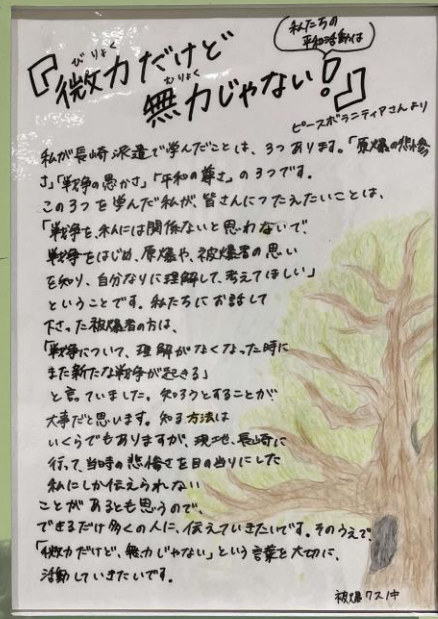 私たちの
平和活動は
びりょく
『微力だけど
むりょく
無力じゃない!』
ピースボランティアさんより
私が長崎派遣で学んだことは、3つあります。「原爆の悲惨
さ」「戦争の愚かさ」「平和の尊さ」の3つです。
この3つを学んだ私が、皆さんにつたえたいことは、
「戦争を、私には関係ないと思わないで、
戦争をはじめ、原爆や、被爆者の思い
を知り、自分なりに理解して、考えてほしい」
ということです。私たちにお話して
下さった被爆者の方は、
「戦争について、理解がなくなった時に
また新たな戦争が起きる」
と言っていました。知ろうとすることが
大事だと思います。知る方法は
いくらでもありますが、現地、長崎に
行って、当時の悲惨さを目の当りにした
私にしか伝えられない
ことがあるとも思うので、
できるだけ多くの人に、伝えていきたいです。そのうえで、
「微力だけど、無力じゃない」という言葉を大切に、
活動していきたいです。
被爆クスノキ